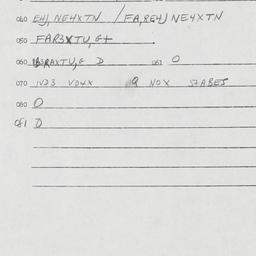 040 E4J, NE4XTN / FA,RE4J NE4XTN
050 FAR3XTU,G+
060 B3RAXTU,G D 061 O
070 1V23 VO4X 9 NOX STABEJ
080 O
081 O